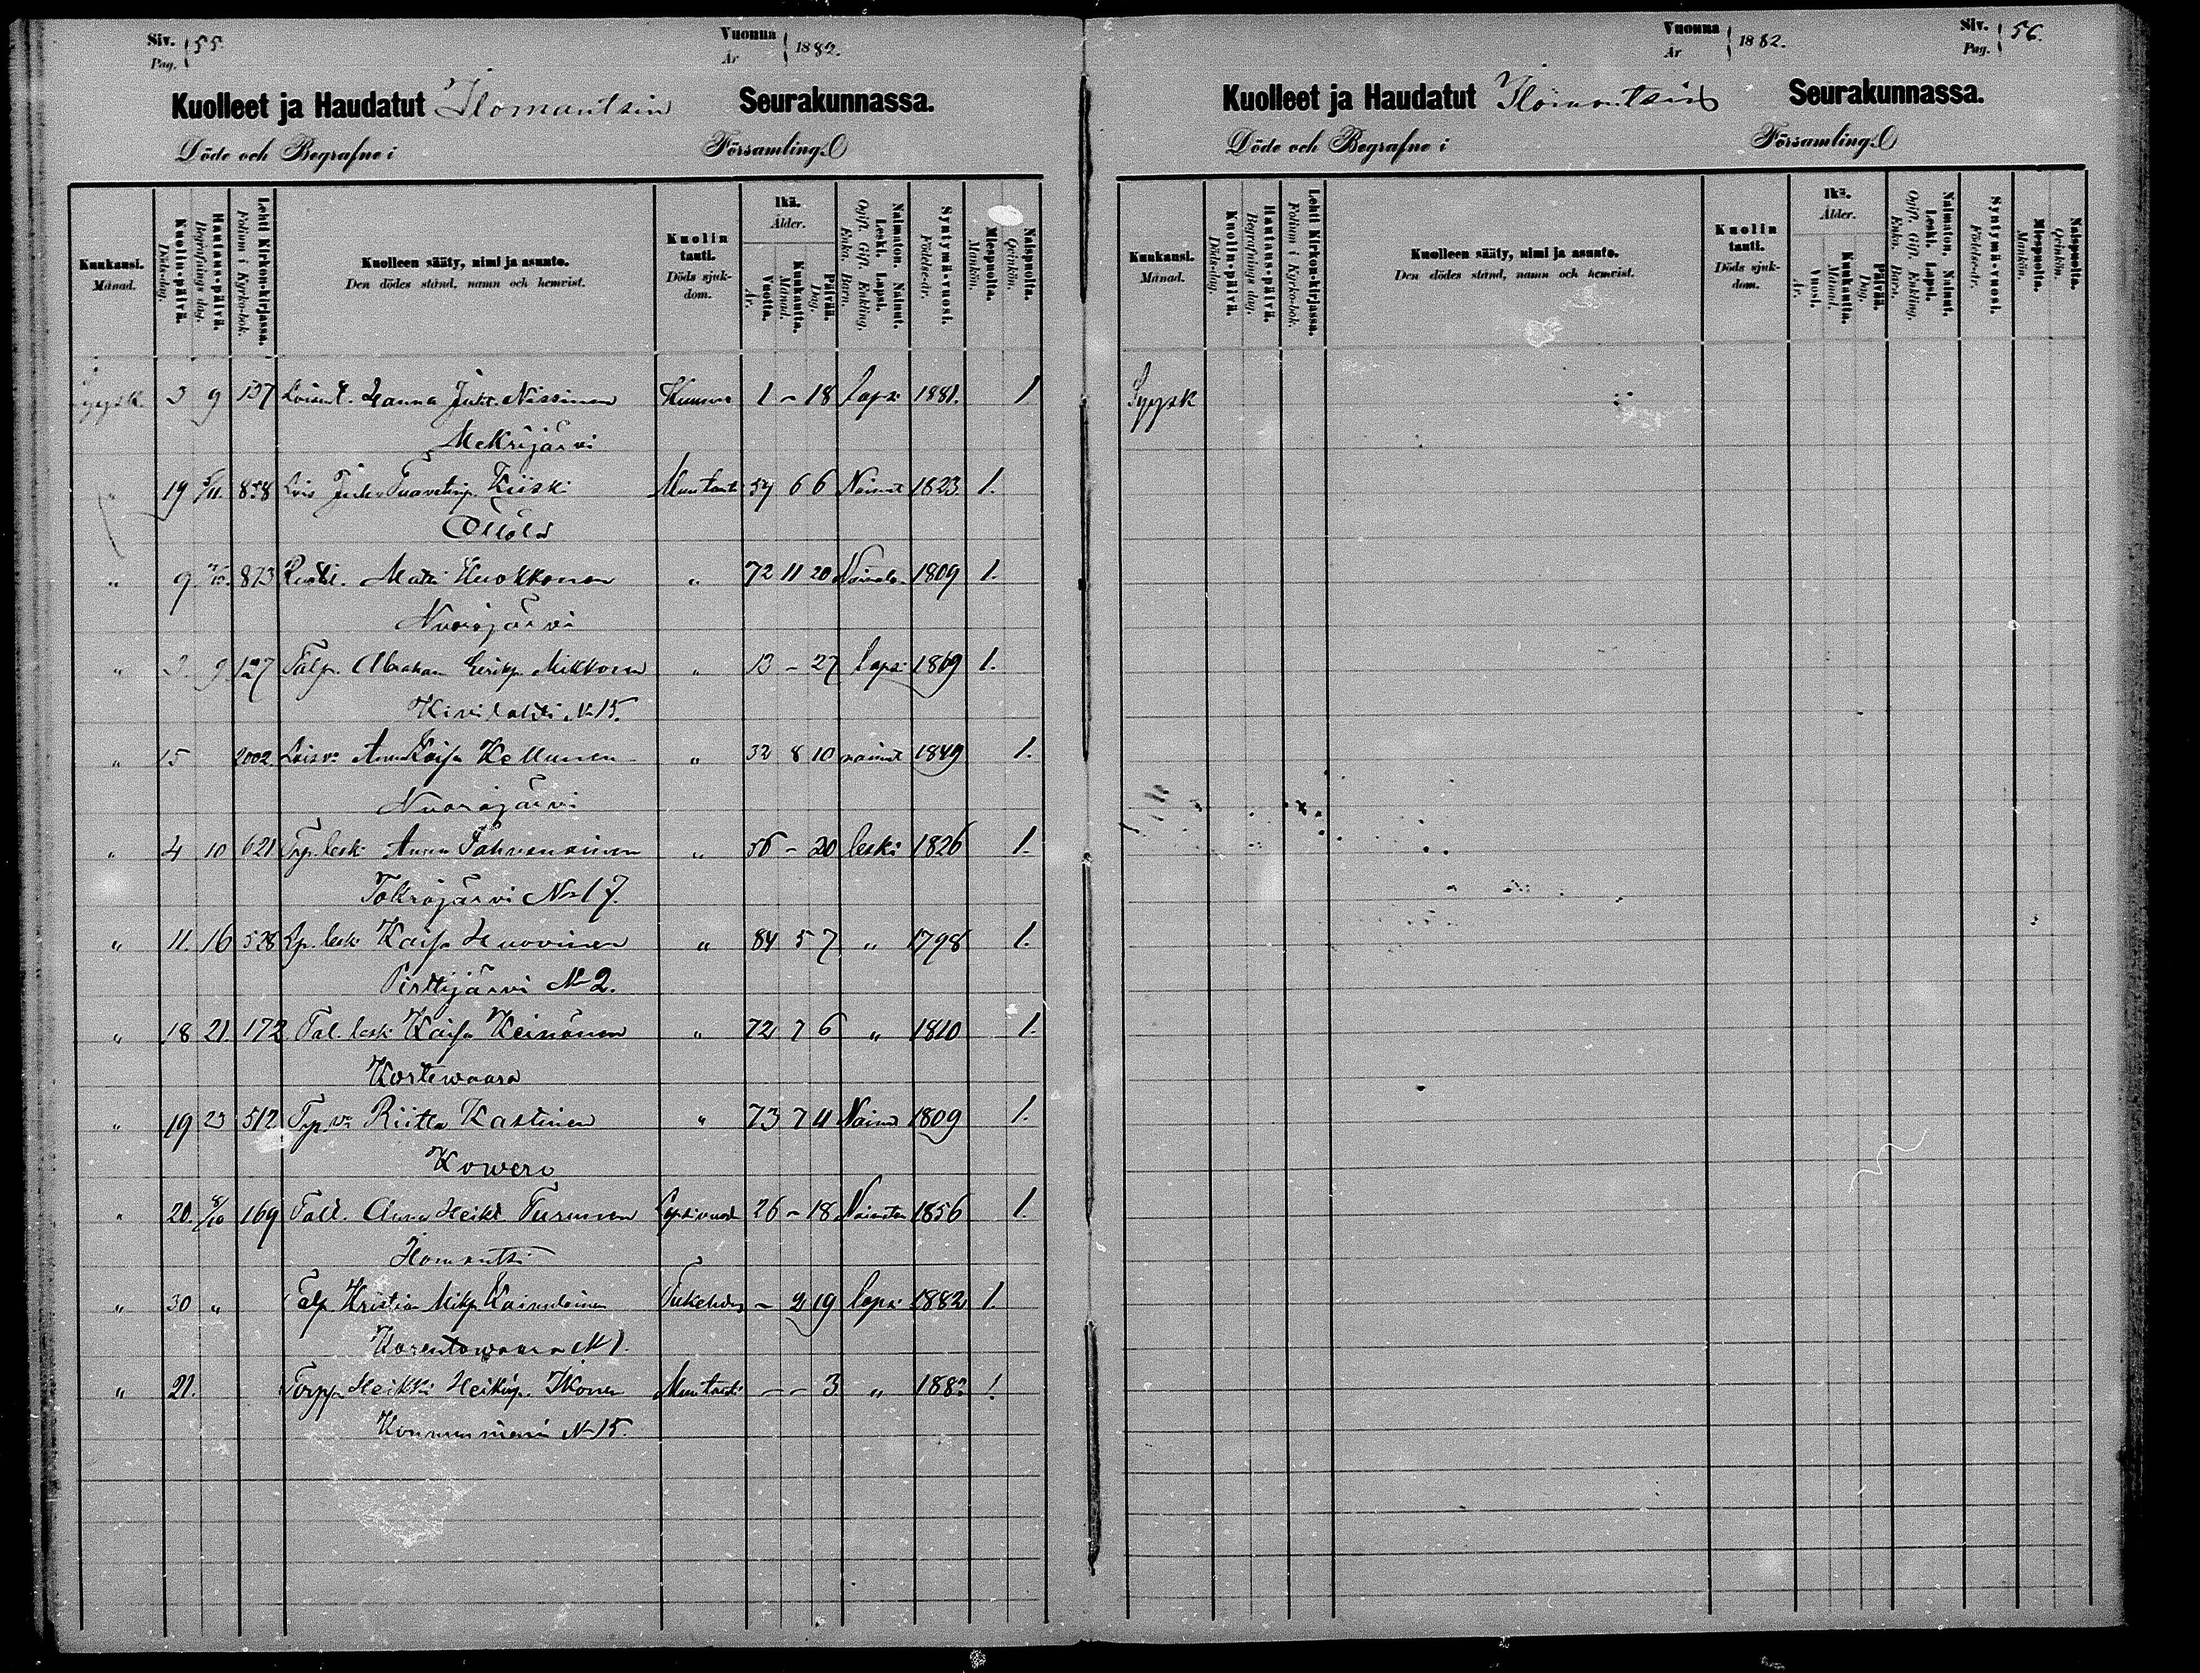 Siv. Pag. 55.
Vuonna År 1882.
Kuolleet ja Haudatut Ilomantsin Seurakunnassa.
Döde och Begrafne i Församling.
Kuukausi. Månad.
Kuolin-päivä. Döds-dag.
Hautaus-päivä. Begrafnings dag.
Lehti Kirkon-kirjassa. Folium i Kyrko-bok.
Kuolleen sääty, nimi ja asunto. Den dödes stånd, namn och hemvist.
Kuolin tauti. Döds sjuk-dom.
Ikä. Ålder.
Vuotta. År.
Kuukautta. Månad.
Päivää. Dag.
Naimaton. Nainut. Leski. Lapsi. Ogift. Gift. Enkling. Enka. Barn.
Syntymä-vuosi. Födelse-år.
Miespuolta. Mankön.
Naispuolta. Qvinkön.
Syysk. 3 9 137 Loisent. Hanna Juh.t. Nissinen 1 - 18 lapsi 1881. 1
Mekrijärvi
" 19 5/11. 858 Lois Juho Kiiski Muu tauti 59 6 6 Nainut 1823 1.
Ollola
" 9 873 Matti Huokkonen " 72 11 20 1809 1.
Nuorojärvi
" 3. 9. 127 Talp. Abraham Erikp. Mikkonen " 13 - 27 lapsi 1869 1.
Kivilahti No 15.
" 15 2002 Lois v:o Anna Kaisa Kellunen " 32 8 10 nainut 1849 1.
Nuorojärvi
" 4 10 621 Trp. leski Anna Pahvenainen " 56 - 20 leski 1826 1.
Tokrajärvi No 17.
" 11. 16 528 Lp. leski Kaisa Huovinen " 84 5 7 " 1798 1.
Pirttijärvi No 2.
" 18 21. 172 Tal. leski Kaisa Keinänen " 72 7 6 " 1810 1.
Kortewaara
" 19 23 512 Trp. v:o Riitta Kastinen " 73 7 11 Nainut 1809 1.
Kowero
" 20. 8/10 169 Talt. Anna Heikt. Turunen 26 - 18 1856 1.
Ilomantsi
" 30 " Talp. Kristian Mikp. Kainulainen Tukehdus - 2 19 lapsi 1882 1.
Korentowaara No 1.
" 21. Torpp. Heikki Heikinp. Ikonen Muu tauti - - 3 " 1882 1.
No 15.
Vuonna År 1882.
Siv. Pag. 56.
Kuolleet ja Haudatut Ilomantsin Seurakunnassa.
Döde och Begrafne i Församling.
Kuukausi. Månad.
Kuolin-päivä. Döds-dag.
Hautaus-päivä. Begrafnings dag.
Lehti Kirkon-kirjassa. Folium i Kyrko-bok.
Kuolleen sääty, nimi ja asunto. Den dödes stånd, namn och hemvist.
Kuolin tauti. Döds sjuk-dom.
Ikä. Ålder.
Vuosi. År.
Kuukautta. Månad.
Päivää. Dag.
Naimaton. Nainut. Leski. Lapsi. Ogift. Gift. Enkling. Enka. Barn.
Syntymä-vuosi. Födelse-år.
Miespuolta. Mankön.
Naispuolta. Qvinkön.
Syysk